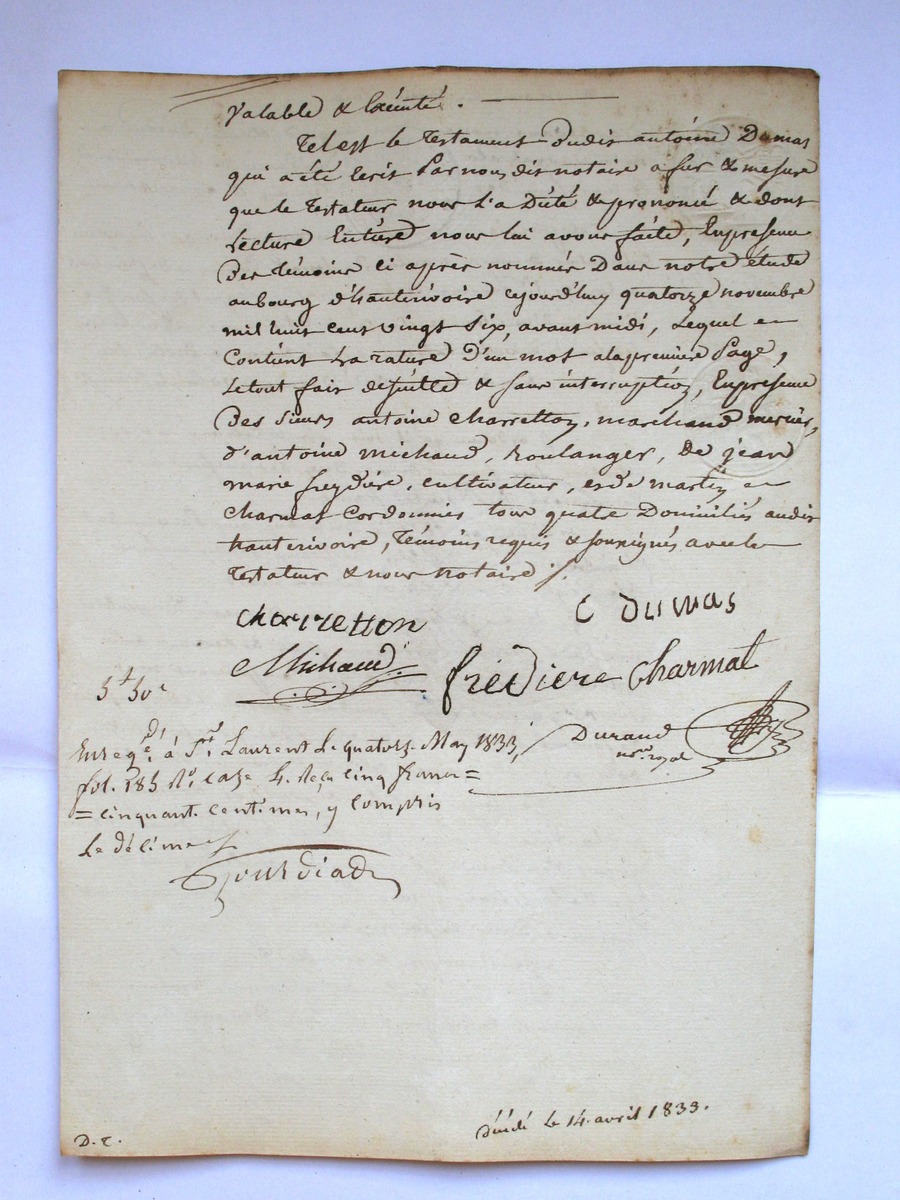 valable & exécuté.
Tel est le testament dudit antoine Dumas
qui a été Ecrit Par nous dit notaire a fur & mesure
que le Testateur nous L'a Dicté & prononcé & dont
Lecture Entiere nous lui avons faite, En presence
Des témoins ci après nommés Dans notre étude
au bourg d'hauterivoire cejourd'huy quatorze novembre
mil huit cent vingt Six, avant midi, Lequel
Contient La rature D'un mot a la première Page,
Le tout fait de suitte & sans interruption, En presence
Des sieurs antoine charretton, marchand mercier,
d'antoine michaud, boulanger, De jean
marie freydière, cultivateur, et de martin
charmat Cordonnier tous quatre Domiciliés audit
hauterivoire, Témoins requis & soussignés avec le
Testateur & nous notaire ./.
charretton
C Dumas
Michaud
friediere Charmat
5f 50c
Durand
nre royal
Enregé. à St. Laurent Le quatorze May 1833,
fol. 185 Ro. case 4. Reçu cinq francs =
= cinquante centimes, y Compris
Le décime
Gourdiad
décédé Le 14. avril 1833.
D. t.